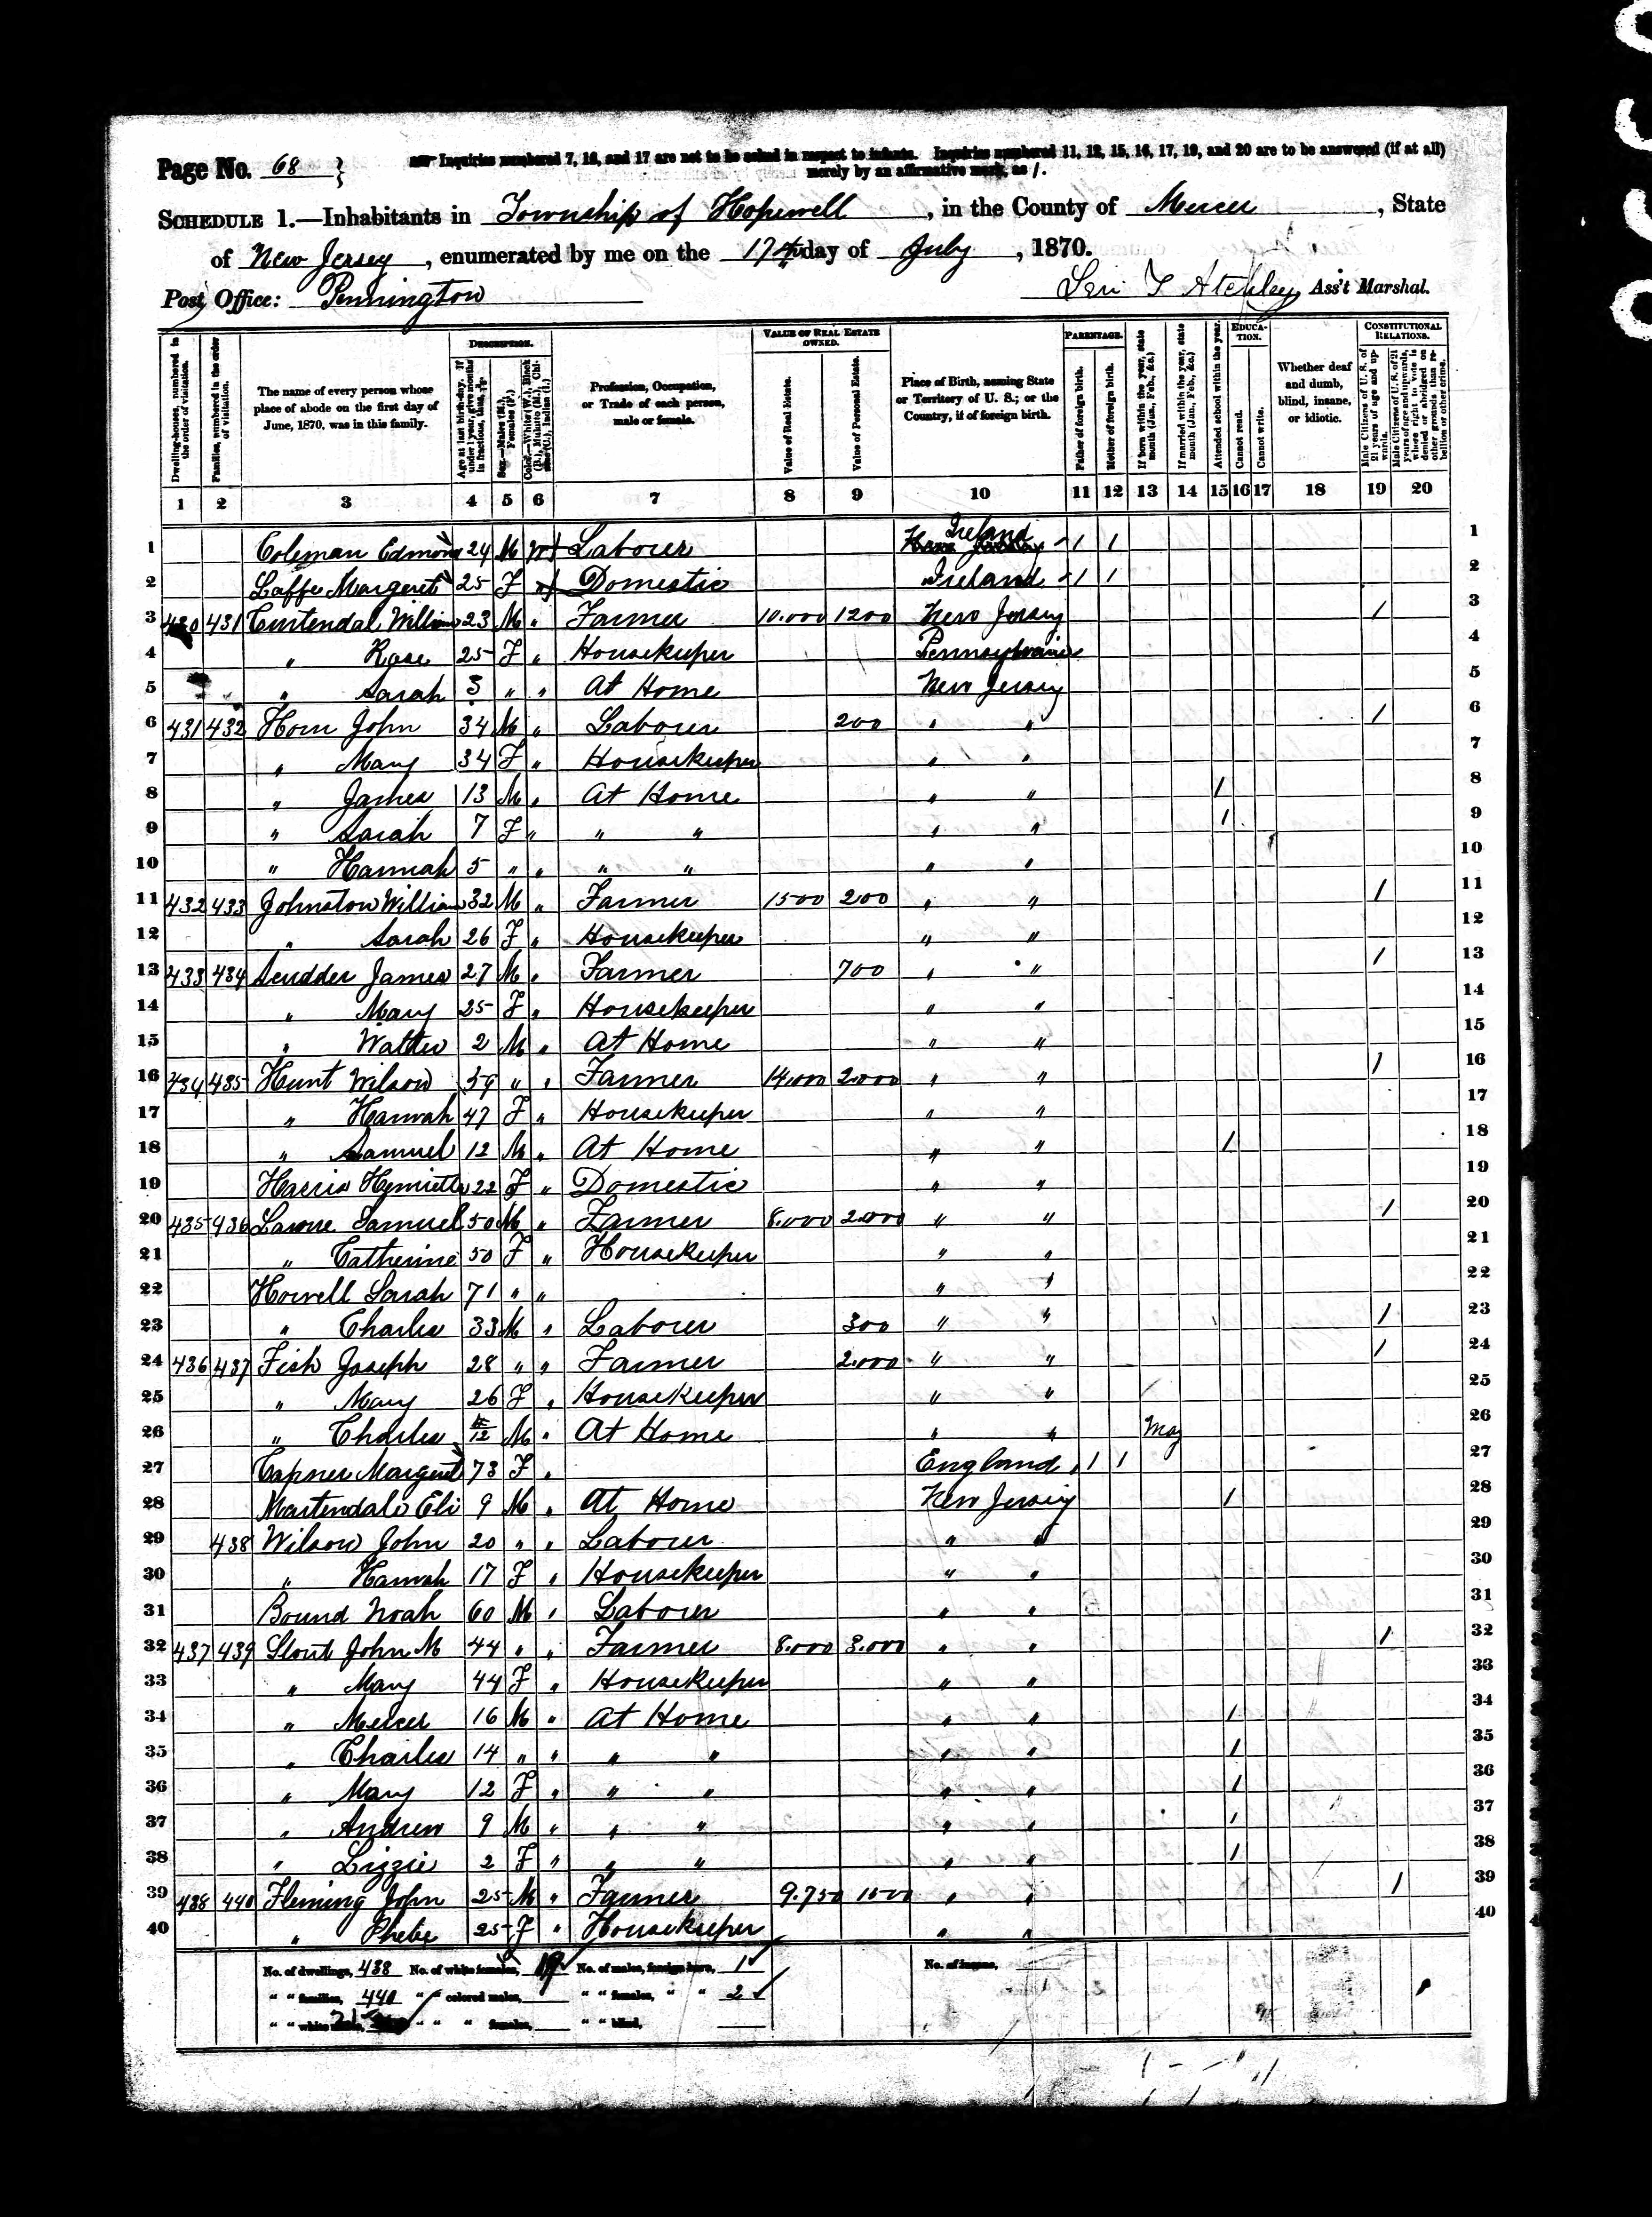 Page No. 68 } Inquiries numbered 7, 16, and 17 are not to be asked in respect to infants. Inquiries numbered 11, 12, 15, 16, 17, 19, and 20 are to be answered (if at all)
merely by an affirmative mark, as /.
SCHEDULE 1.—Inhabitants in Township of Hopewell, in the County of Mercer, State
of New Jersey, enumerated by me on the 17th day of July, 1870.
Post Office: Pennington
Levi T Atchley, Ass't Marshal.
Dwelling-houses, numbered in the order of visitation.
Families, numbered in the order of visitation.
The name of every person whose place of abode on the first day of June, 1870, was in this family.
DESCRIPTION.
Age at last birth-day. If under 1 year, give months in fractions, thus,
Sex.—Males (M.), Females (F.)
Color.—White (W.), Black (B.), Mulatto (M.), Chinese (C.), Indian (I.)
Profession, Occupation, or Trade of each person, male or female.
VALUE OF REAL ESTATE OWNED.
Value of Real Estate.
Value of Personal Estate.
Place of Birth, naming State or Territory of U. S.; or the Country, if of foreign birth.
PARENTAGE.
Father of foreign birth.
Mother of foreign birth.
If born within the year, state month (Jan., Feb., &c.)
If married within the year, state month (Jan., Feb., &c.)
Attended school within the year.
EDUCATION.
Cannot read.
Cannot write.
Whether deaf and dumb, blind, insane, or idiotic.
CONSTITUTIONAL RELATIONS.
Male Citizens of U. S. of 21 years of age and upwards.
Male Citizens of U. S. of 21 years of age and upwards, where right to vote is denied or abridged on other grounds than rebellion or other crime.
1 2 3 4 5 6 7 8 9 10 11 12 13 14 15 16 17 18 19 20
1 Coleman Edmond 24 M W Laborer Ireland 1 1 1
2 Laffe Margeret 25 F " Domestic Ireland 1 1 2
3 430 431 William 23 M " Farmer 10.000 1200 New Jersey 1 3
4 " Rose 25 F " Housekeeper Pennsylvania 4
5 " Sarah 3 " " At Home New Jersey 5
6 431 432 Horn John 34 M " Laborer 200 " " 1 6
7 " Mary 34 F " Housekeeper " " 7
8 " James 13 M " At Home " " 1 8
9 " Sarah 7 F " " " " " 1 9
10 " Hannah 5 " " " " " " 10
11 432 433 Johnston William 32 M " Farmer 1500 200 " " 1 11
12 " Sarah 26 F " Housekeeper " " 12
13 433 434 Scudder James 27 M " Farmer 700 " " 1 13
14 " Mary 25 F " Housekeeper " " 14
15 " Walter 2 M " At Home " " 15
16 434 435 Hunt Wilson 59 " " Farmer 14.000 2.000 " " 1 16
17 " Hannah 47 F " Housekeeper " " 17
18 " Samuel 12 M " At Home " " 1 18
19 Harris Henrietta 22 F " Domestic " " 19
20 435 436 Larue Samuel 50 M " Farmer 8.000 2.000 " " 1 20
21 " Catherine 50 F " Housekeeper " " 21
22 Howell Sarah 71 " " " " 22
23 " Charles 33 M " Laborer 300 " " 1 23
24 436 437 Fish Joseph 28 " " Farmer 2.000 " " 1 24
25 " Mary 26 F " Housekeeper " " 25
26 " Charles /12 M " At Home " " May 26
27 Tapner Margeret 73 F " England 1 1 27
28 Martendale Eli 9 M " At Home New Jersey 1 28
29 438 Wilson John 20 " " Laborer " " 29
30 " Hannah 17 F " Housekeeper " " 30
31 Bound Noah 60 M " Laborer " " 31
32 437 439 Stout John M 44 " " Farmer 8.000 3.000 " " 1 32
33 " Mary 44 F " Housekeeper " " 33
34 " Mercer 16 M " At Home " " 1 34
35 " Charles 14 " " " " " " 1 35
36 " Mary 12 F " " " " " 1 36
37 " Andrew 9 M " " " " " 1 37
38 " Lizzie 2 F " " " " " 1 38
39 438 440 Fleming John 25 M " Farmer 9.750 1500 " " 1 39
40 " Phebe 25 F " Housekeeper " " 40
No. of dwellings, 438 No. of white females, 19 No. of males, foreign born, 1 No. of insane,
" " families, 440 " " colored males, " " females, " " 2
" " white males, 21 " " " females, " " blind,